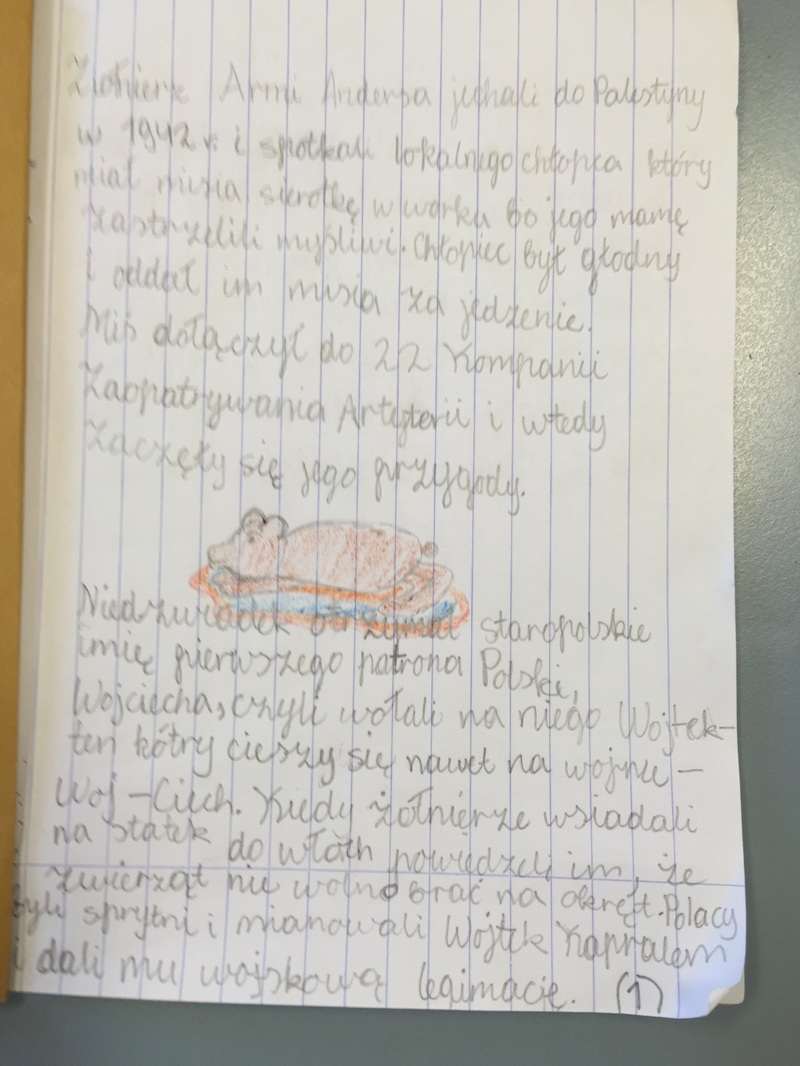 Żołnierze Armi Andersa jechali do Palestyny
w 1942 r. i spotkali lokalnego chłopca który
miał misia sierotkę w worku bo jego mamę
zastrzelili myśliwi. Chłopiec był głodny
i oddał im misia za jedzenie.
Miś dołączył do 22 Kompanii
Zaopatrywania Artyterii i wtedy
zaczęły się jego przygody.
Niedzwiadek staropolskie
imię pierwszego patrona Polski,
Wojciecha, czyli wołali na niego Wojtek-
ten kótry cieszy się nawet na wojnie -
Woj - Ciech. Kiedy żołnierze wsiadali
na statek do włoch powiedzeli im, że
zwierząt nie wolno brać na okręt. Polacy
byli sprytni i mianowali Wojtek Kapralem
i dali mu wojskową legimację. (1)